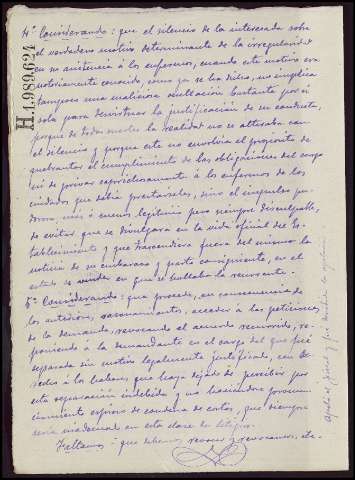 4º Considerando: que el silencio de la interesada sobre
el verdadero motivo determinante de la irregularidad
en su asistencia a los enfermos, cuando este motivo era
notoriamente conocido, como ya se ha dicho, no implica
tampoco una maliciosa ocultación bastante por sí
sola para desvirtuar la justificación de su conducta,
porque de todas suertes la realidad no se alteraba con
el silencio y porque este no envolvía el propósito de
quebrantar el cumplimiento de las obligaciones del cargo
ni de privar caprichosamente a los enfermos de los
cuidados que debía prestarles, sino el impulso pu-
doroso más o menos legítimo pero siempre disculpable,
de evitar que se divulgara en la vida oficial del Es-
tablecimiento y que trascendiera fuera del mismo la
noticia de su embarazo y parto consiguiente, en el
estado de viuda en que se hallaba la recurrente.
5º Considerando: que procede, en consecuencia de
los anteriores razonamientos, acceder a las peticiones
de la demanda, revocando el acuerdo recurrido, re-
poniendo a la demandante en el cargo del que fué
separada sin motivo legalmente justificado, con de-
recho a los haberes que haya dejado de percibir por
esta separación indebida y no haciendo pronun-
ciamiento expreso de condena de costas, que siempre
sería inadecuado en esta clase de litigios.
Fallamos: que debemos revocar y revocamos, etc.
H.1989624